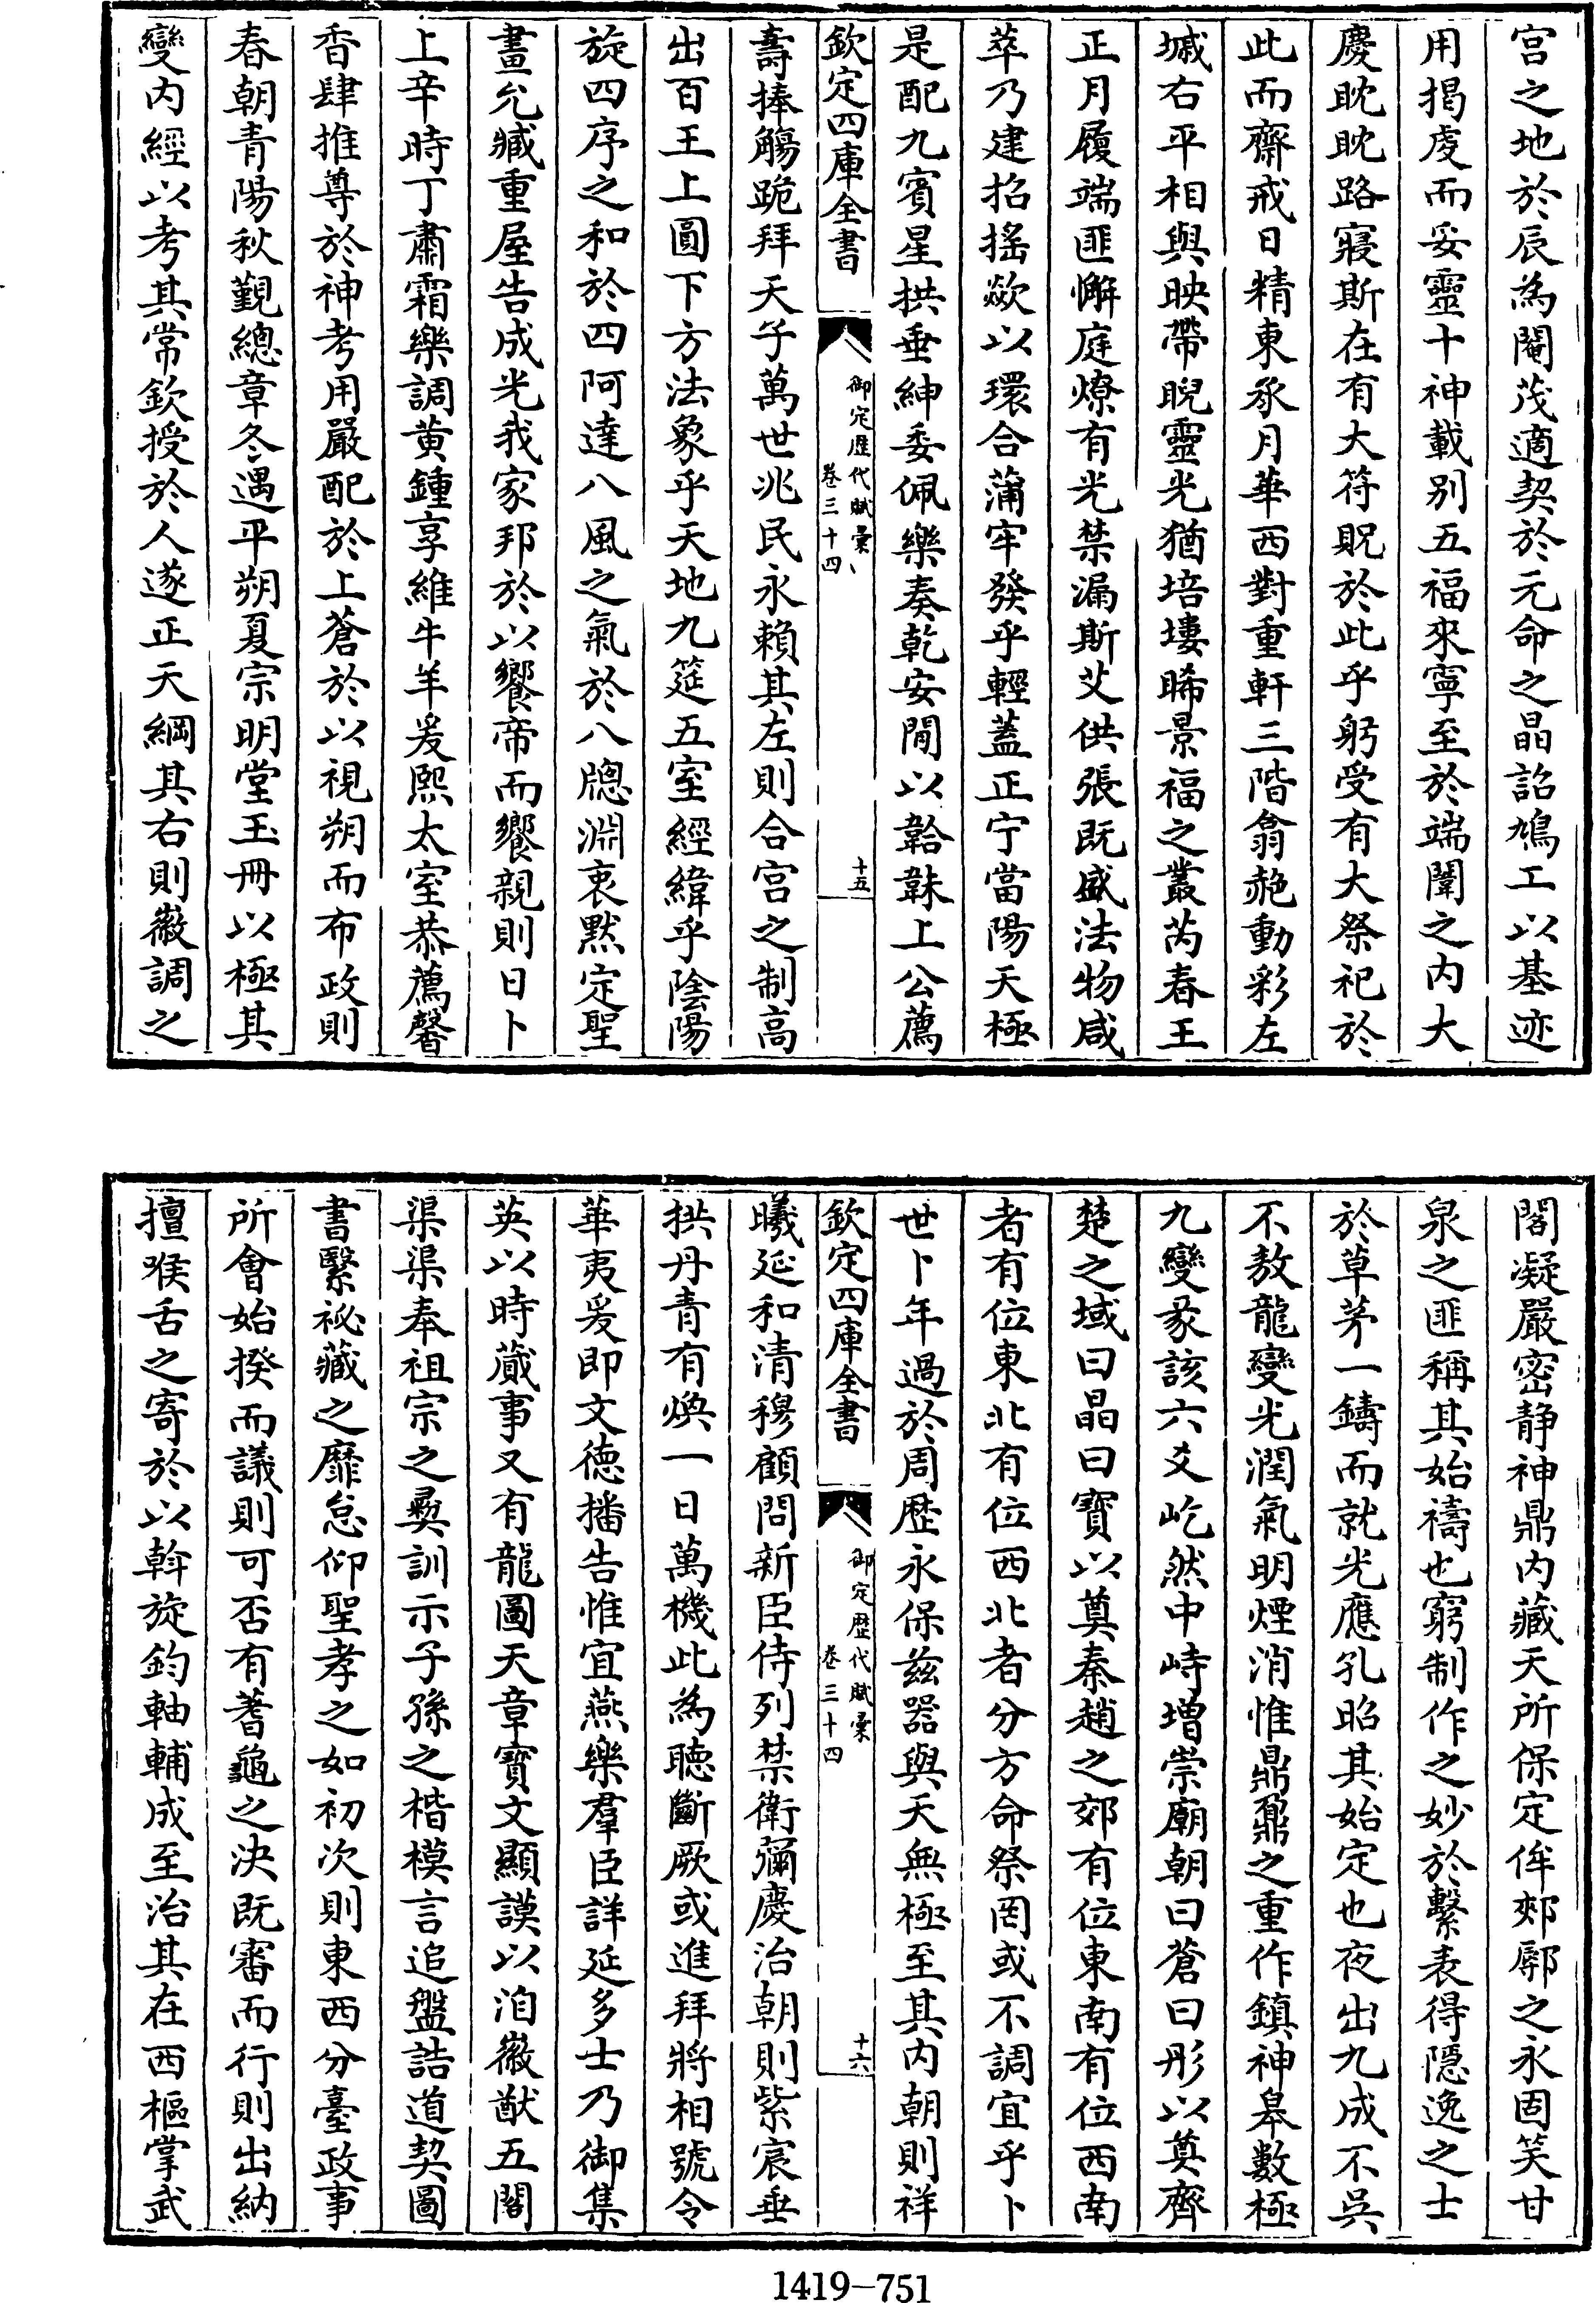 宫之地於辰為閹茂適契於元命之晶詔鳩工以基迹
用揭䖍而妥靈十神載别五福來寧至於端闈之内大
慶耽耽路寢斯在有大符貺於此乎躬受有大祭祀於
此而齋戒日精東承月華西對重軒三階翕赩動彩左
墄右平相與映帶睨靈光猶培塿睎景福之叢芮春王
正月履端匪懈庭燎有光禁漏斯艾供張既盛法物咸
萃乃建招搖歘以環合蒲牢發乎輕蓋正宁當陽天極
是配九賓星拱垂紳委佩樂奏乾安閒以韐韎上公薦
欽定四庫全書
御定歴代賦彚
卷三十四
十五
壽捧觴跪拜天子萬世兆民永賴其左則合宫之制高
出百王上圓下方法象乎天地九筵五室經緯乎陰陽
旋四序之和於四阿達八風之氣於八牕淵衷黙定聖
畫允臧重屋告成光我家邦於以饗帝而饗親則日卜
上辛時丁肅霜樂調黄鍾享維牛羊爰熙太室恭薦馨
香肆推尊於神考用嚴配於上蒼於以視朔而布政則
春朝青陽秋覲總章冬遇平朔夏宗明堂玉冊以極其
變内經以考其常欽授於人遂正天綱其右則徽調之
閣凝嚴密静神鼎内藏天所保定侔郟鄏之永固笑甘
泉之匪稱其始禱也窮制作之妙於繫表得隱逸之士
於草茅一鑄而就光應孔昭其始定也夜出九成不吳
不敖龍變光潤氣明煙消惟鼎鼐之重作鎮神臯數極
九變彖該六爻屹然中峙增崇廟朝曰蒼曰彤以奠齊
楚之域曰晶曰寶以奠秦趙之郊有位東南有位西南
者有位東北有位西北者分方命祭罔或不調宜乎卜
世卜年過於周歴永保兹器與天無極至其内朝則祥
欽定四庫全書
御定歴代賦彚
卷三十四
十六
曦延和清穆顧問新臣侍列禁衛彌慶治朝則紫宸垂
拱丹青有煥一日萬機此為聴斷厥或進拜將相號令
華夷爰即文德播告惟宜燕樂羣臣詳延多士乃御集
英以時蕆事又有龍圖天章寳文顯謨以洎徽猷五閣
渠渠奉祖宗之彝訓示子孫之楷模言追盤誥道契圖
書繄祕藏之靡怠仰聖孝之如初次則東西分臺政事
所會始揆而議則可否有蓍龜之決既審而行則出納
擅喉舌之寄於以斡旋鈞軸輔成至治其在西樞掌武
1419-751